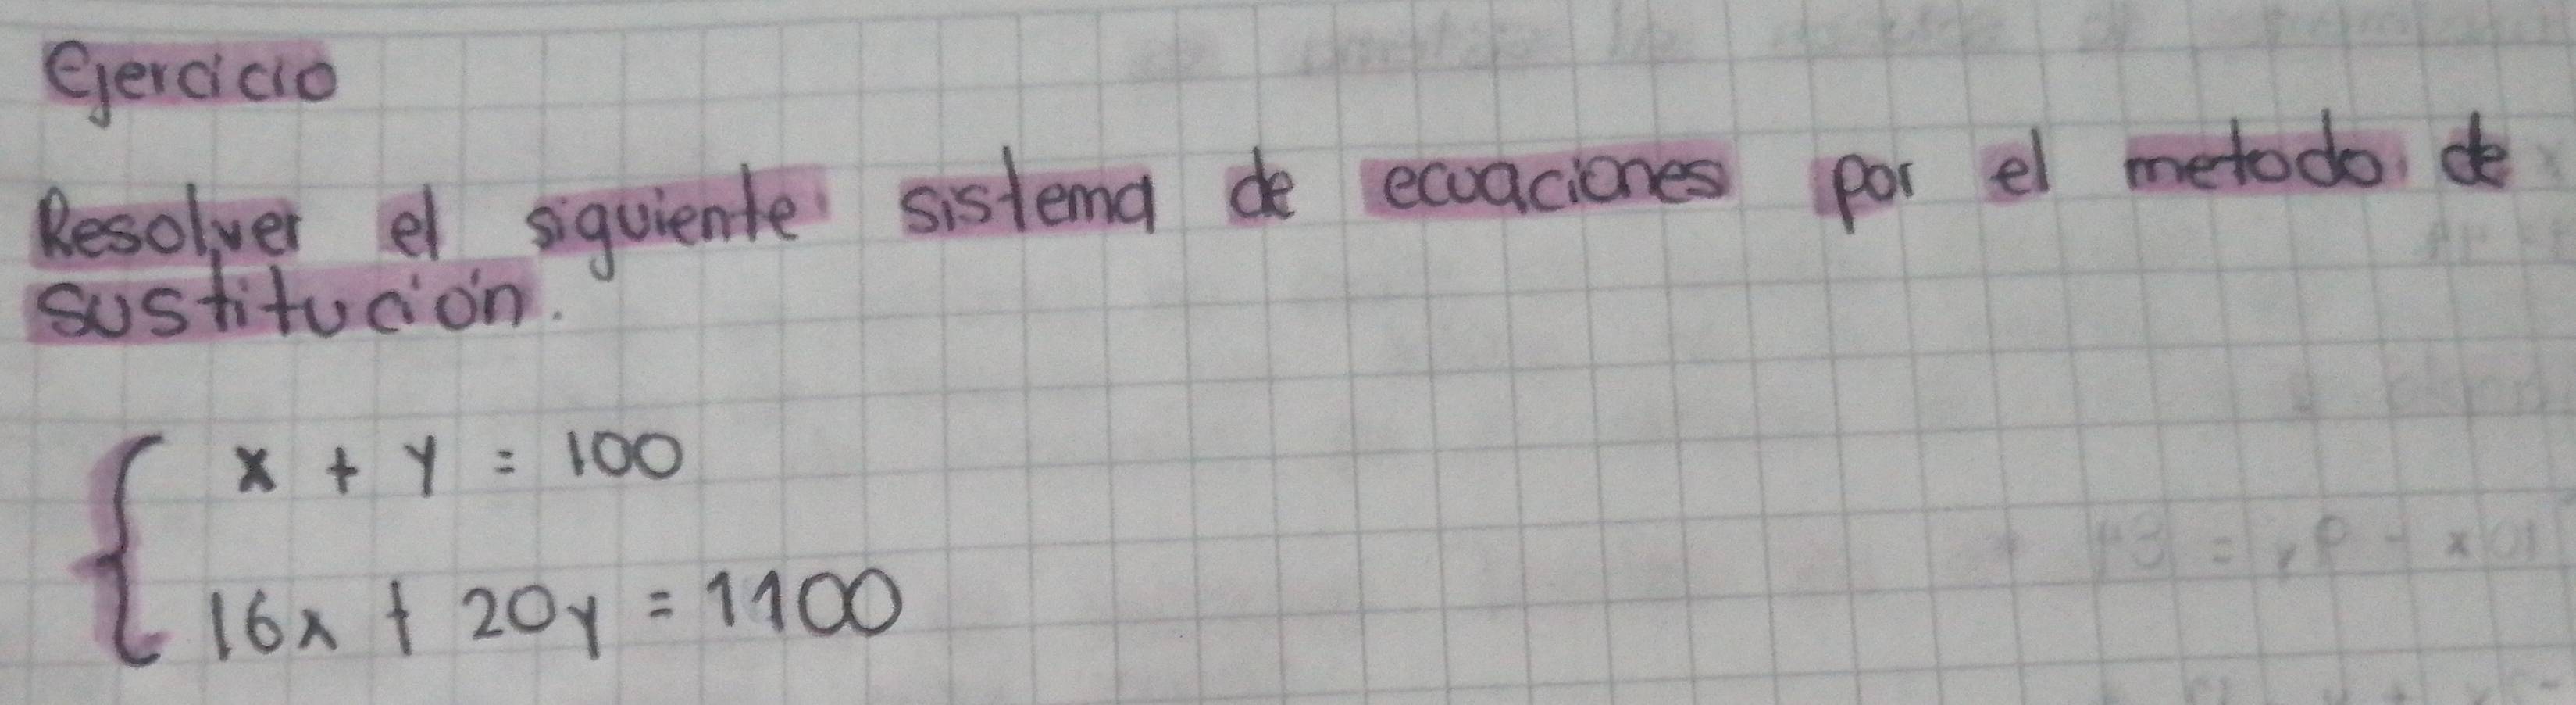 Ejercicio
Resolver el siguiente sistema de ecuaciones por el metodo de
sustitución.
x + y = 100
16x + 20y = 1100